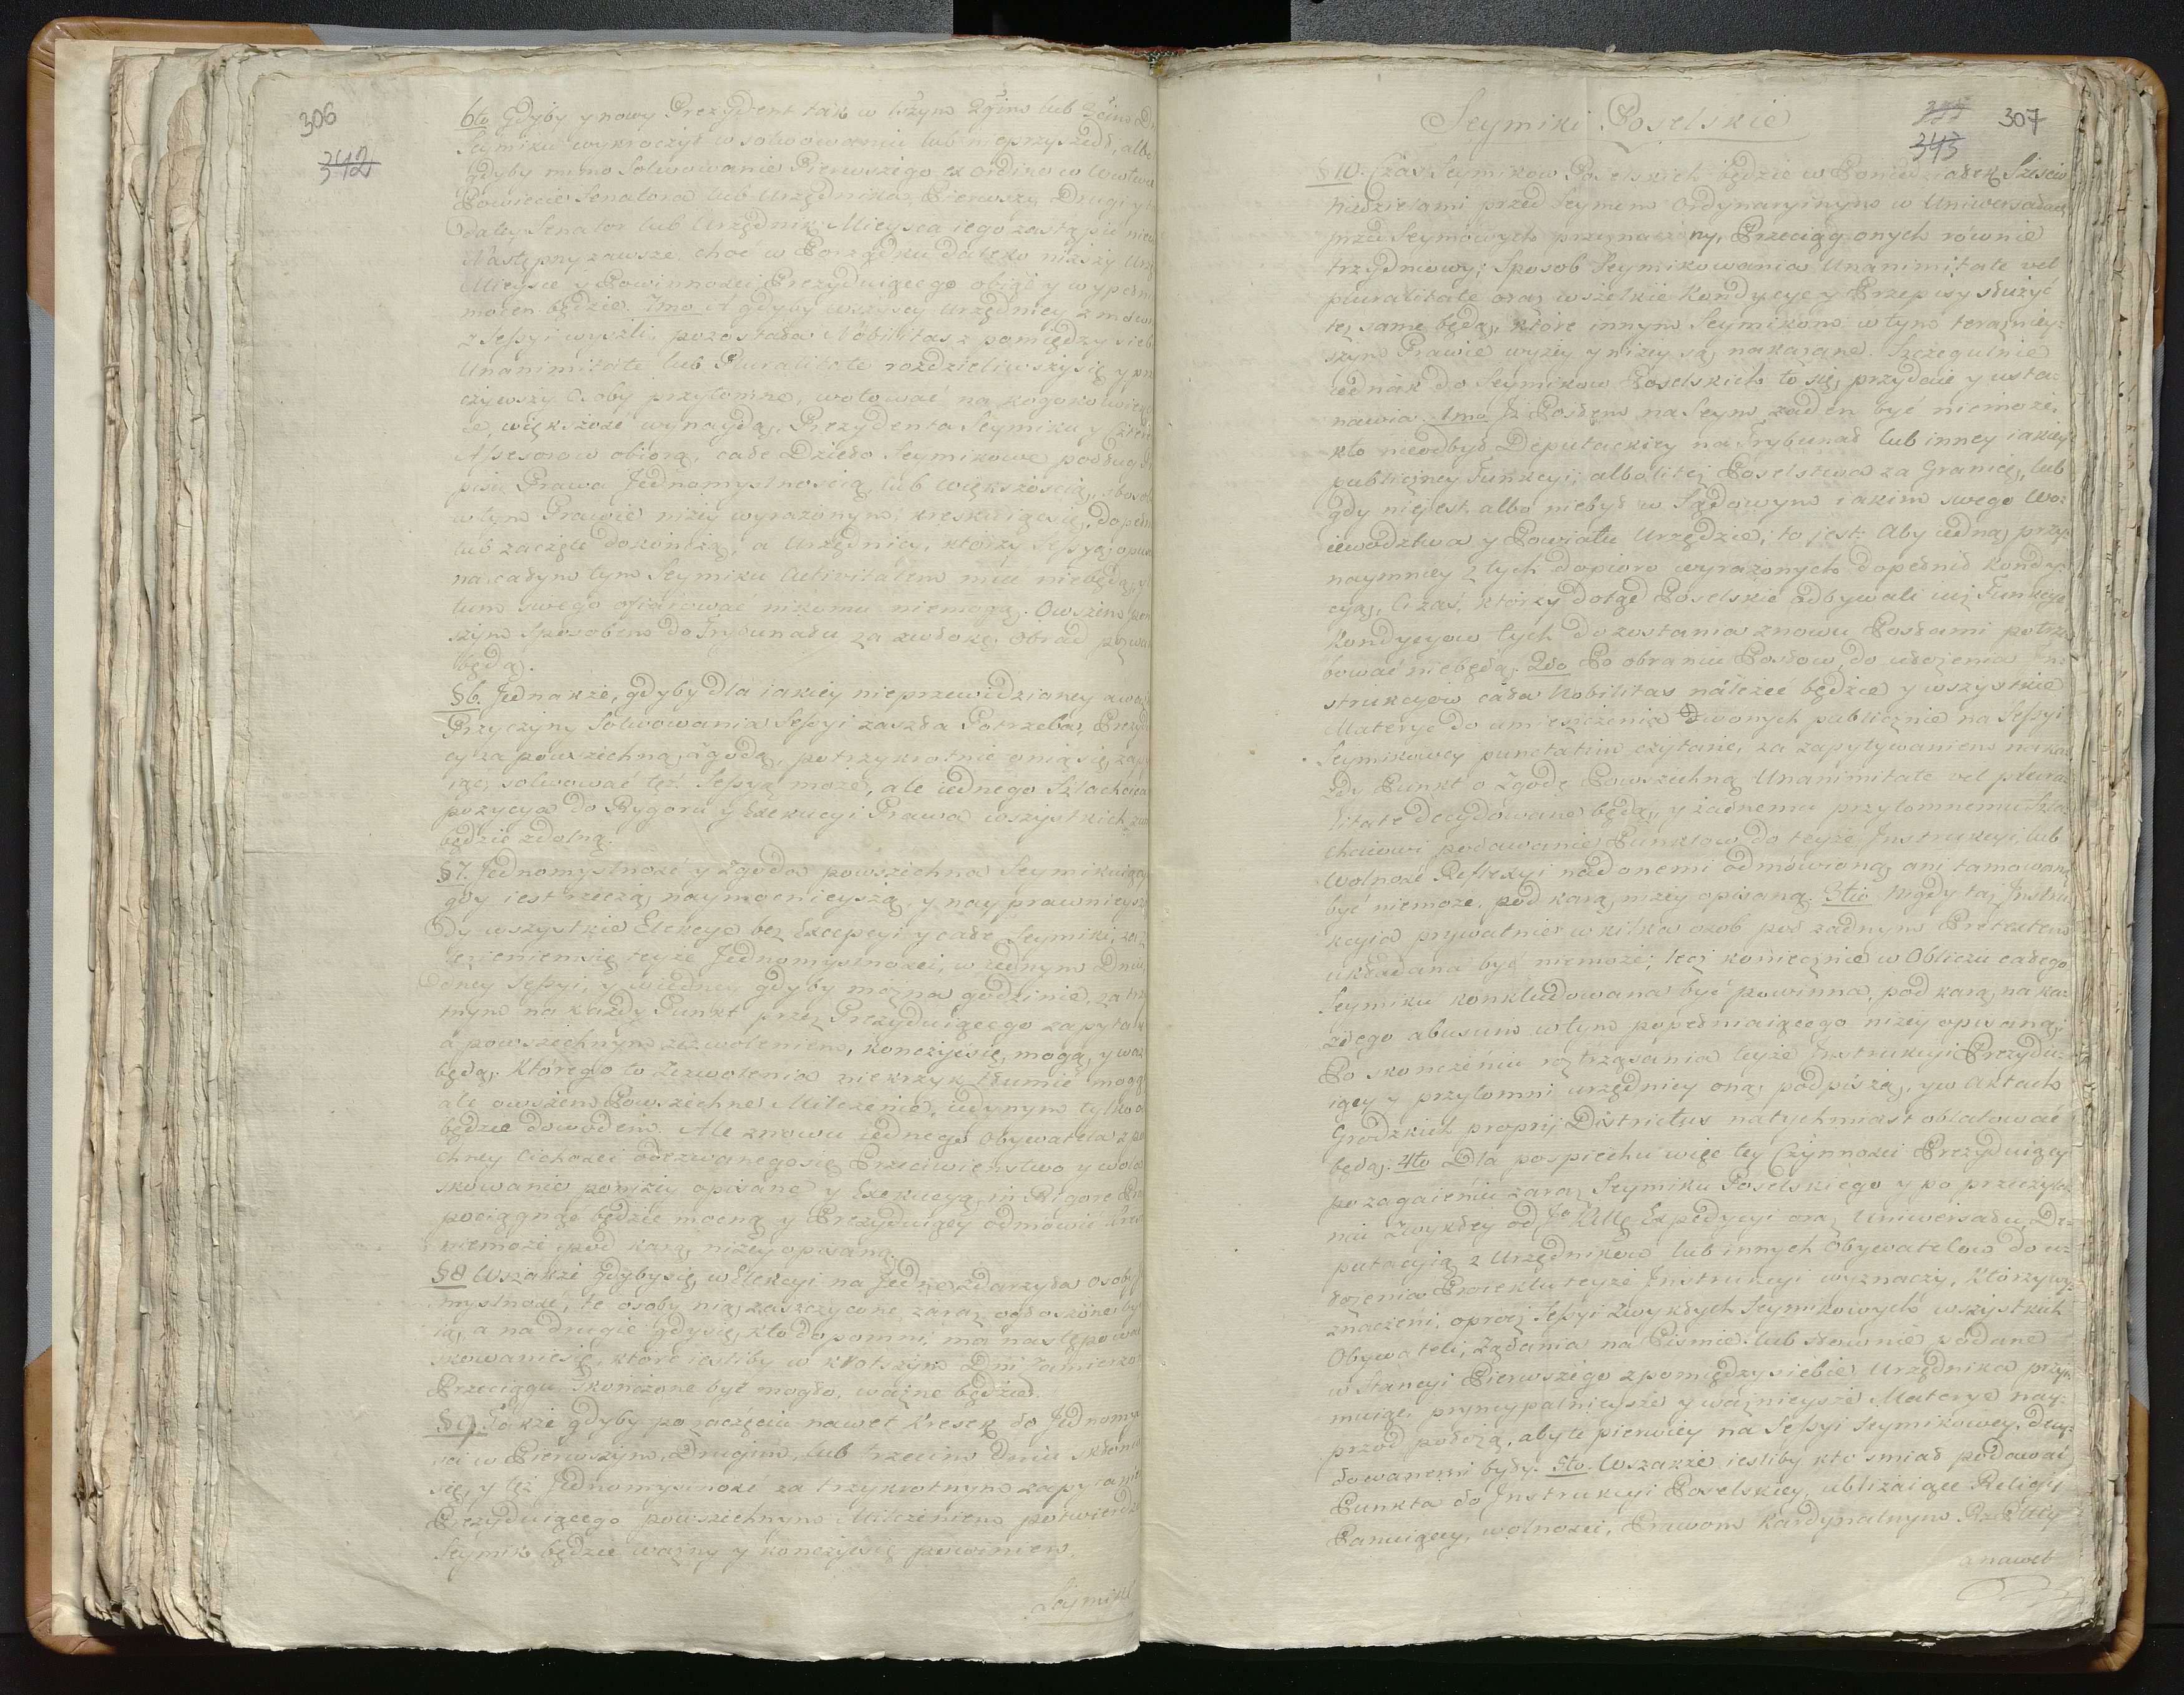 306
342
6to Gdyby y nowy Prezydent tak w 1szym 2gim lub 3cim
Seymiku wykroczył w solwowaniu lub nieprzyszedł, albo
gdyby mimo Solwowanie Pierwszego ex ordine w
Powiecie Senatora lub Urzędnika, Pierwszy Drugi y
daley Senator lub Urzędnik Mieysca iego zastąpić
Następny zawsze, choć w Porządku daleko niższy
Mieysce y Powinności Prezyduiącego obiąć y
mocen będzie. 7mo A gdyby wszyscy Urzędnicy
z Sessyi wyszli pozostała Nobilitas z pomiędzy
Unanimitate lub Pluralitate rozdzieliwszy się y
czywszy Osoby przytomne, wotować na kogokolwiek
ie, większość wynaydą, Prezydenta Seymiku y
Assesorow obiorą, całe Dzieło Seymikowe podług
pisu Prawa Jednomyślnością, lub większością,
w tym Prawie niżey wyrażonym, kreskuiąc się,
lub zaczęte dokończą, a Urzędnicy, którzy Sessyą
na całym tym Seymiku Activitatem mieć niebędą,
tum swego ofiarować nikomu niemogą. Owszem
szym Sposobem do Trybunału za zwłokę obrad
będą.
§6. Jednakże, gdyby dla iakiey nieprzewidzianey
Przyczyny Solwowania Sessyi zaszła Potrzeba,
cy za powszechną zgodą, potrzykrotnie o nią się
iąc, solwować też Sessyą może, ale iednego Szlachcica
pozycya do Rygoru y Exekucyi Prawa wszystkich
będzie zdolną.
§7. Jednomyslność y Zgoda powszechna
gdy iest rzeczą naymocnieyszą, y nay
dy wszystkie Elekcye bez Excepcyi y całe Seymiki,
teyże Jednomyslności, w iednym Dniu,
dney Sessyi, y wiedney gdyby można godzinie,
tnym na każdy Punkt przez Prezyduiącego
a powszechnym zezwoleniem, kończyć się mogą,
będą. Którego to Zezwolenia niekrzyk
ale owszem Powszechne Milczenie, iedynym tylko
będzie dowodem. Ale znowu iednego Obywatela
chney Cichości odezwanego się Przeciwieństwo y
skowanie poniżey opisane y Exekucyą, in Rigore
pociągnąć będzie mocną y Prezyduiący odmówić
niemoże pod karą niżey opisaną.
§8 Wszakże gdyby się w Elekcyi na Jedne zdarzyła osoby
myslność, te osoby nią zaszczycone zaraz ogłoszone
ią, a na drugie gdy się kto dopomni, ma następować
skowanie się, które iesliby w krotszym Dni zamierzo
Przeciągu skończone być mogło, ważne będzie.
§9. Także gdyby po zaczęciu nawet Kresek do
ści w Pierwszym, Drugim, lub trzecim Dniu
się, y też Jednomyslność za trzykrotnym
Prezyduiącego powszechnym Milczeniem
Seymik będzie ważny y kończyć się powinien.
Seymiki
Seymiki Poselskie
307
343
§10. Czas Seymikow Poselskich będzie w Poniedziałek Sześcią
Niedzielami przed Seymem Ordynaryinym w Uniwersałach
przed Seymowych przeznaczony, Przeciąg onych równie
trzydniowy; Sposob Seymikowania Unanimitate vel
pluralitate oraz wszelkie Kondycye y Przepisy służyć
też same będą, które innym Seymikom w tym teraźniey:
szym Prawie wyżey y niżey są nakazane. Szczegulnie
iednak do Seymikow Poselskich to się przydaie y usta:
nawia. 1mo Iż Posłem na Seym żaden być niemoże,
kto nieodbył Deputackiey na Trybunał lub inney iakiey
publiczney Funkcyi; albo litej Poselstwa za Granicę, lub
gdy niejest, albo niebył w Sądowym iakim swego Wo:
iewodztwa y Powiatu Urzędzie; to jest: Aby iedną przy:
naymniey z tych dopioro wyrażonych dopełnił Kondy:
cyą, Ci zaś, którzy dotąd Poselskie odbywali iuż Funkcye
Kondycyow tych do zostania znowu Posłami potrze
bować niebędą. 2do Po obraniu Posłow, do ułożenia In:
strukcyow cała Nobilitas należeć będzie y wszystkie
Materye do umieszczenia w onych publicznie na Sessyi
Seymikowey punctatim czytane, za zapytywaniem na ka:
żdy Punkt o Zgodę Powszechną Unanimitate vel plura:
litate decydowane będą, y żadnemu przytomnemu Szla:
chcicowi podawanie Punktow do teyże Instrukcyi, lub
Wolność Reflexyi nad onemi odmówioną, ani tamowaną
być niemoże, pod karą niżey opisaną. 3tio Nigdy taż Instru
kcyia prywatnie w kilka osob pod żadnym Pretextem
układana być niemoże; lecz koniecznie w Obliczu całego
Seymiku konkludowana być powinna, pod karą na ka:
żdego abusum w tym popełniaiącego niżey opisaną.
Po skonczeniu roztrząsania teyże Instrukcyi Prezydu:
iący y przytomni urzędnicy oną podpiszą, y w Aktach
Grodzkich proprij Districtus natychmiast oblatować
będą. 4to Dla pospiechu więc tey Czynności Prezyduiący
po zagaieniu zaraz Seymiku Poselskiego y po przeczyta:
niu zwykłey od JoKMci Expedycyi oraz Uniwersału, De:
putacyią z Urzędnikow lub innych Obywatelow do u:
łożenia Proiektu teyże Instrukcyi wyznaczy, którzy wy:
znaczeni, oprocz Sessyi zwykłych Seymikowych wszystkich
Obywateli, Żądania na Pismie lub słownie podane
w Stancyi Pierwszego z pomiędzy siebie Urzędnika przyi:
muiąc, pryncypalnieysze y ważnieysze Materye nay:
przod położą, aby te pierwiey na Sessyi Seymikowey, decy:
dowanemi były. 5to. Wszakże iesliby kto smiał podawać
Punkta do Instrukcyi Poselskiey, ubliżaiące Religij
Panuiącey, wolności, Prawom Kardynalnym RzePltey
a nawet